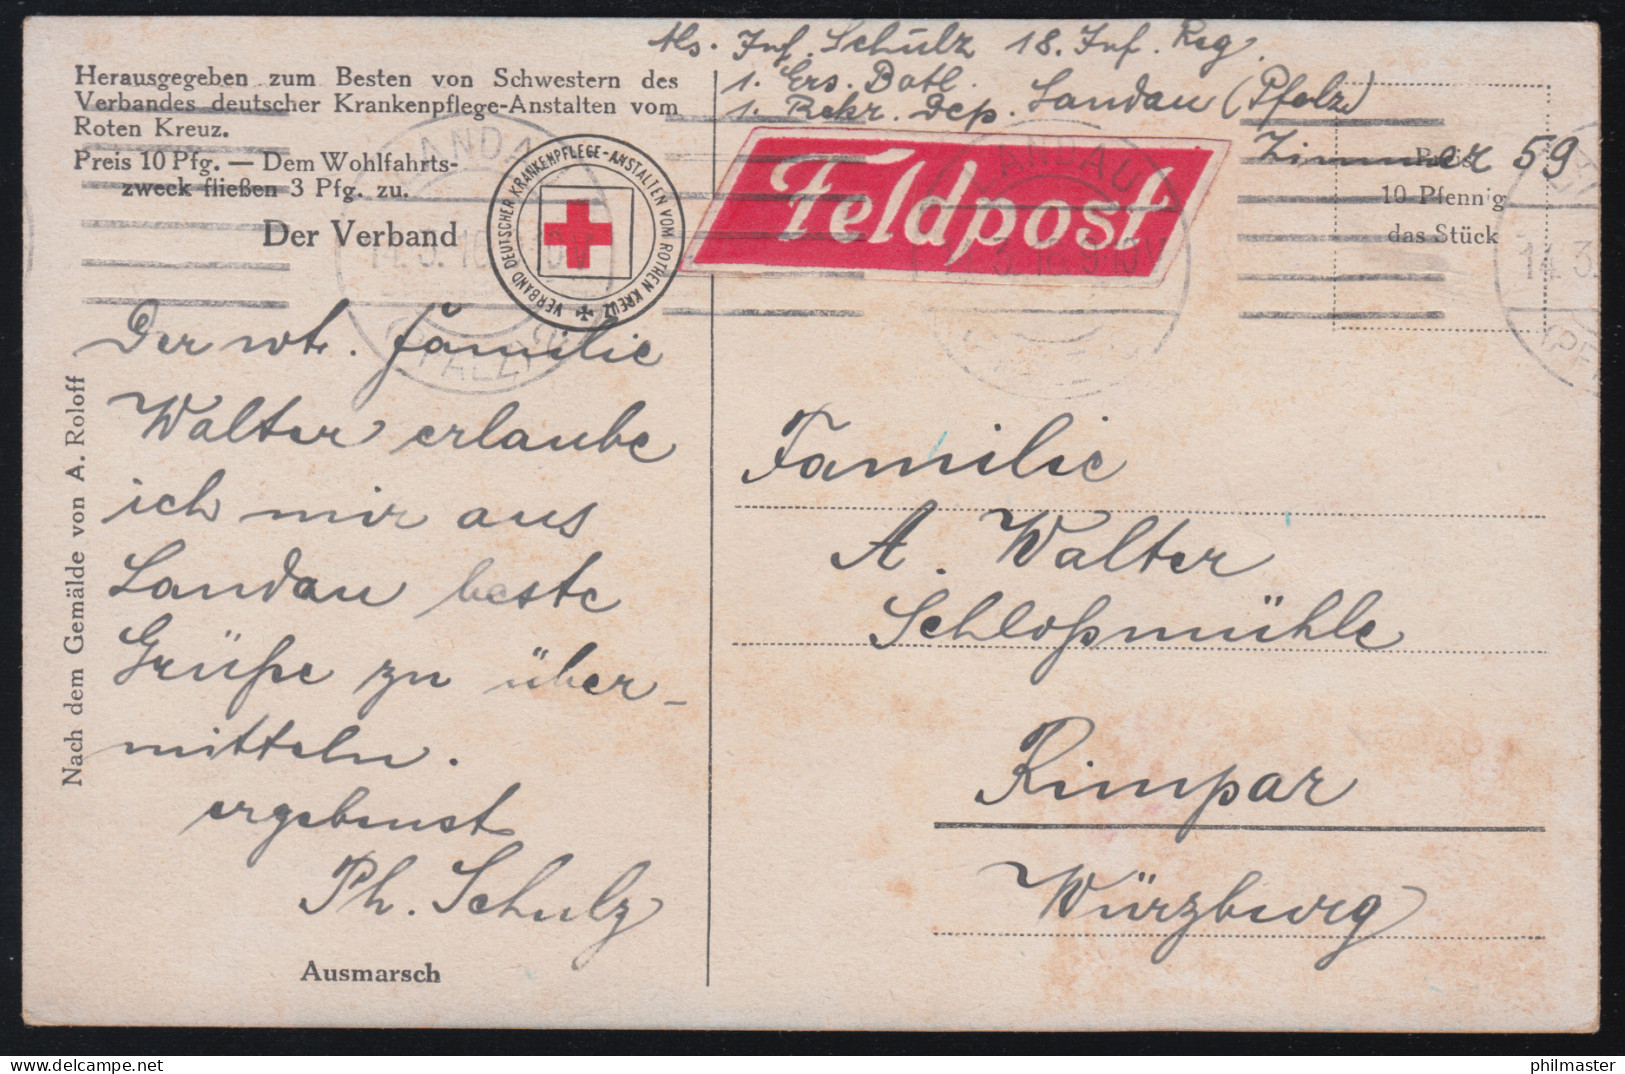 Abs. Inf. Schulz 18. Inf. Reg.
1. Ers. Batl.
1. Rekr. Dep. Landau (Pfalz)
Zimmer 59
Herausgegeben zum Besten von Schwestern des
Verbandes deutscher Krankenpflege-Anstalten vom
Roten Kreuz.
Preis 10 Pfg. — Dem Wohlfahrts-
zweck fließen 3 Pfg. zu.
Der Verband
VERBAND DEUTSCHER KRANKENPFLEGE-ANSTALTEN VOM ROTHEN KREUZ
Feldpost
Preis
10 Pfennig
das Stück
LANDAU
14.3.16 9-10V
(PFALZ)
LANDAU
14.3.16 9-10V
14.3.
(PF
Der wt. Familie
Walter erlaube
ich mir aus
Landau beste
Grüße zu über-
mitteln.
ergebenst
Ph. Schulz
Ausmarsch
Nach dem Gemälde von A. Roloff
Familie
A. Walter
Schloßmühle
Rimpar
Würzburg
philmaster